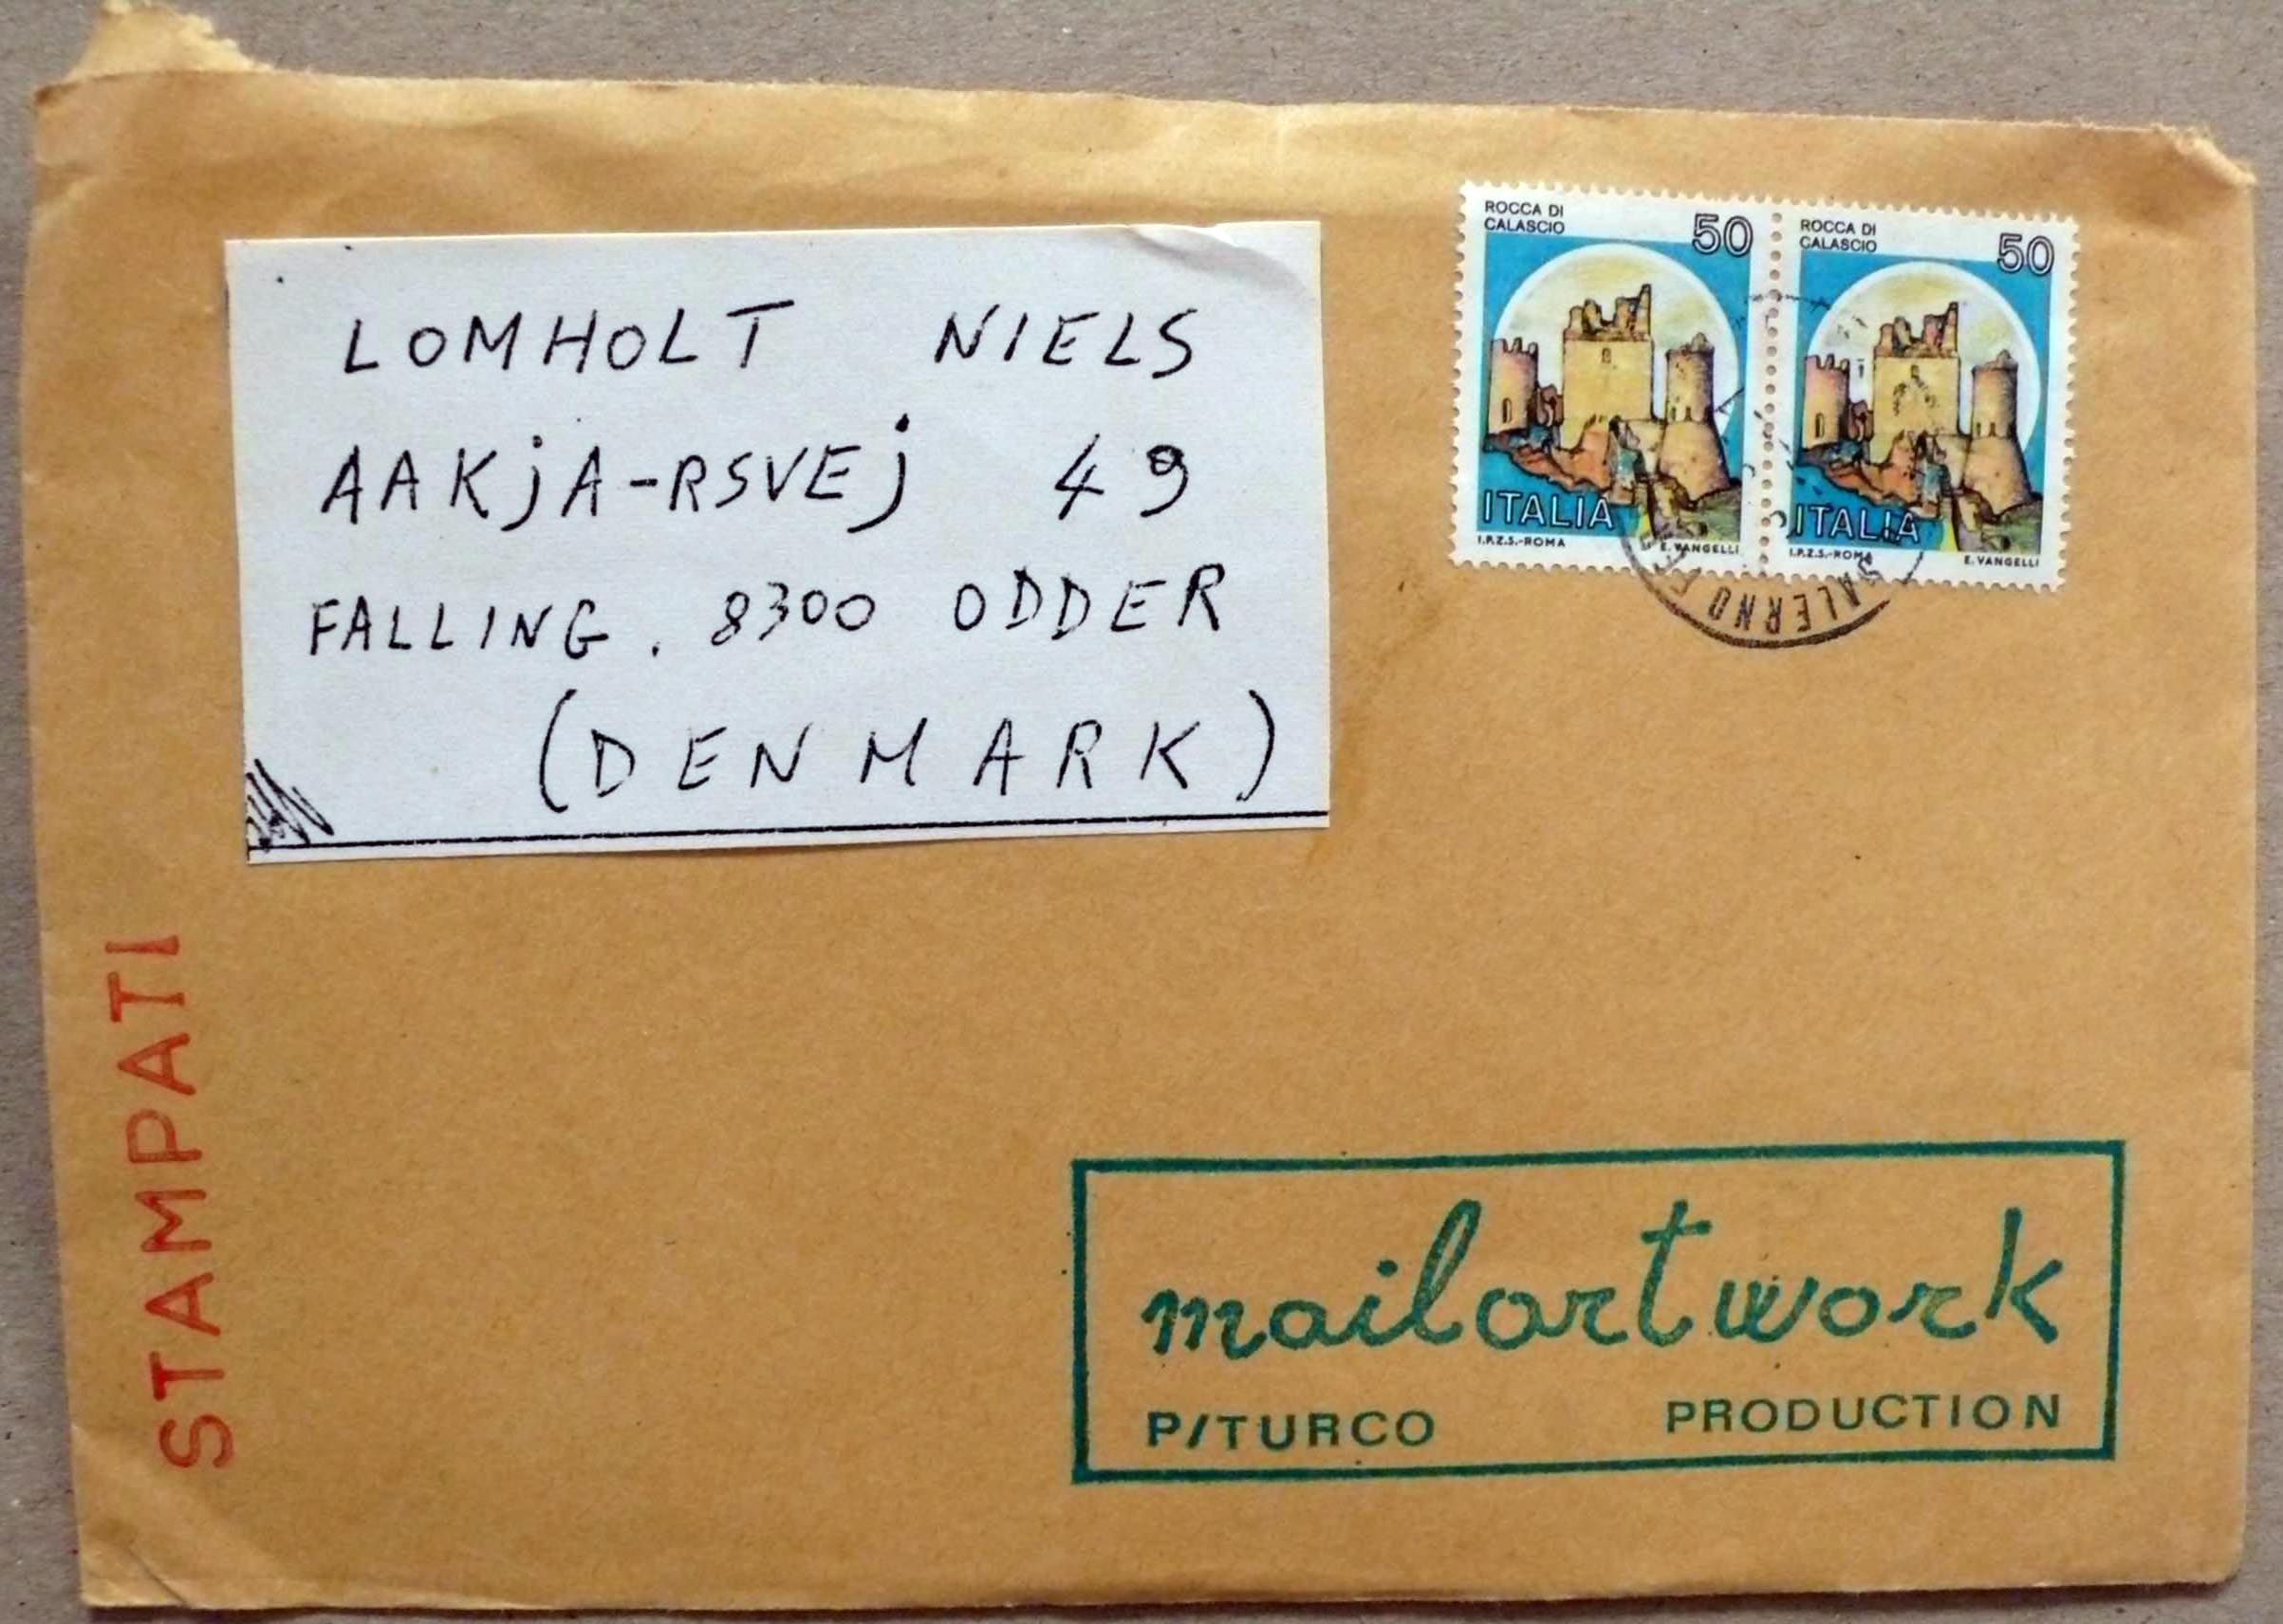 LOMHOLT NIELS
AAKjA-RSVEj 49
FALLING. 8300 ODDER
(DENMARK)
ROCCA DI
CALASCIO
50
ITALIA
I.P.Z.S.-ROMA E. VANGELLI
ROCCA DI
CALASCIO
50
ITALIA
I.P.Z.S.-ROMA E. VANGELLI
SALERNO
STAMPATI
mailartwork
P/TURCO PRODUCTION